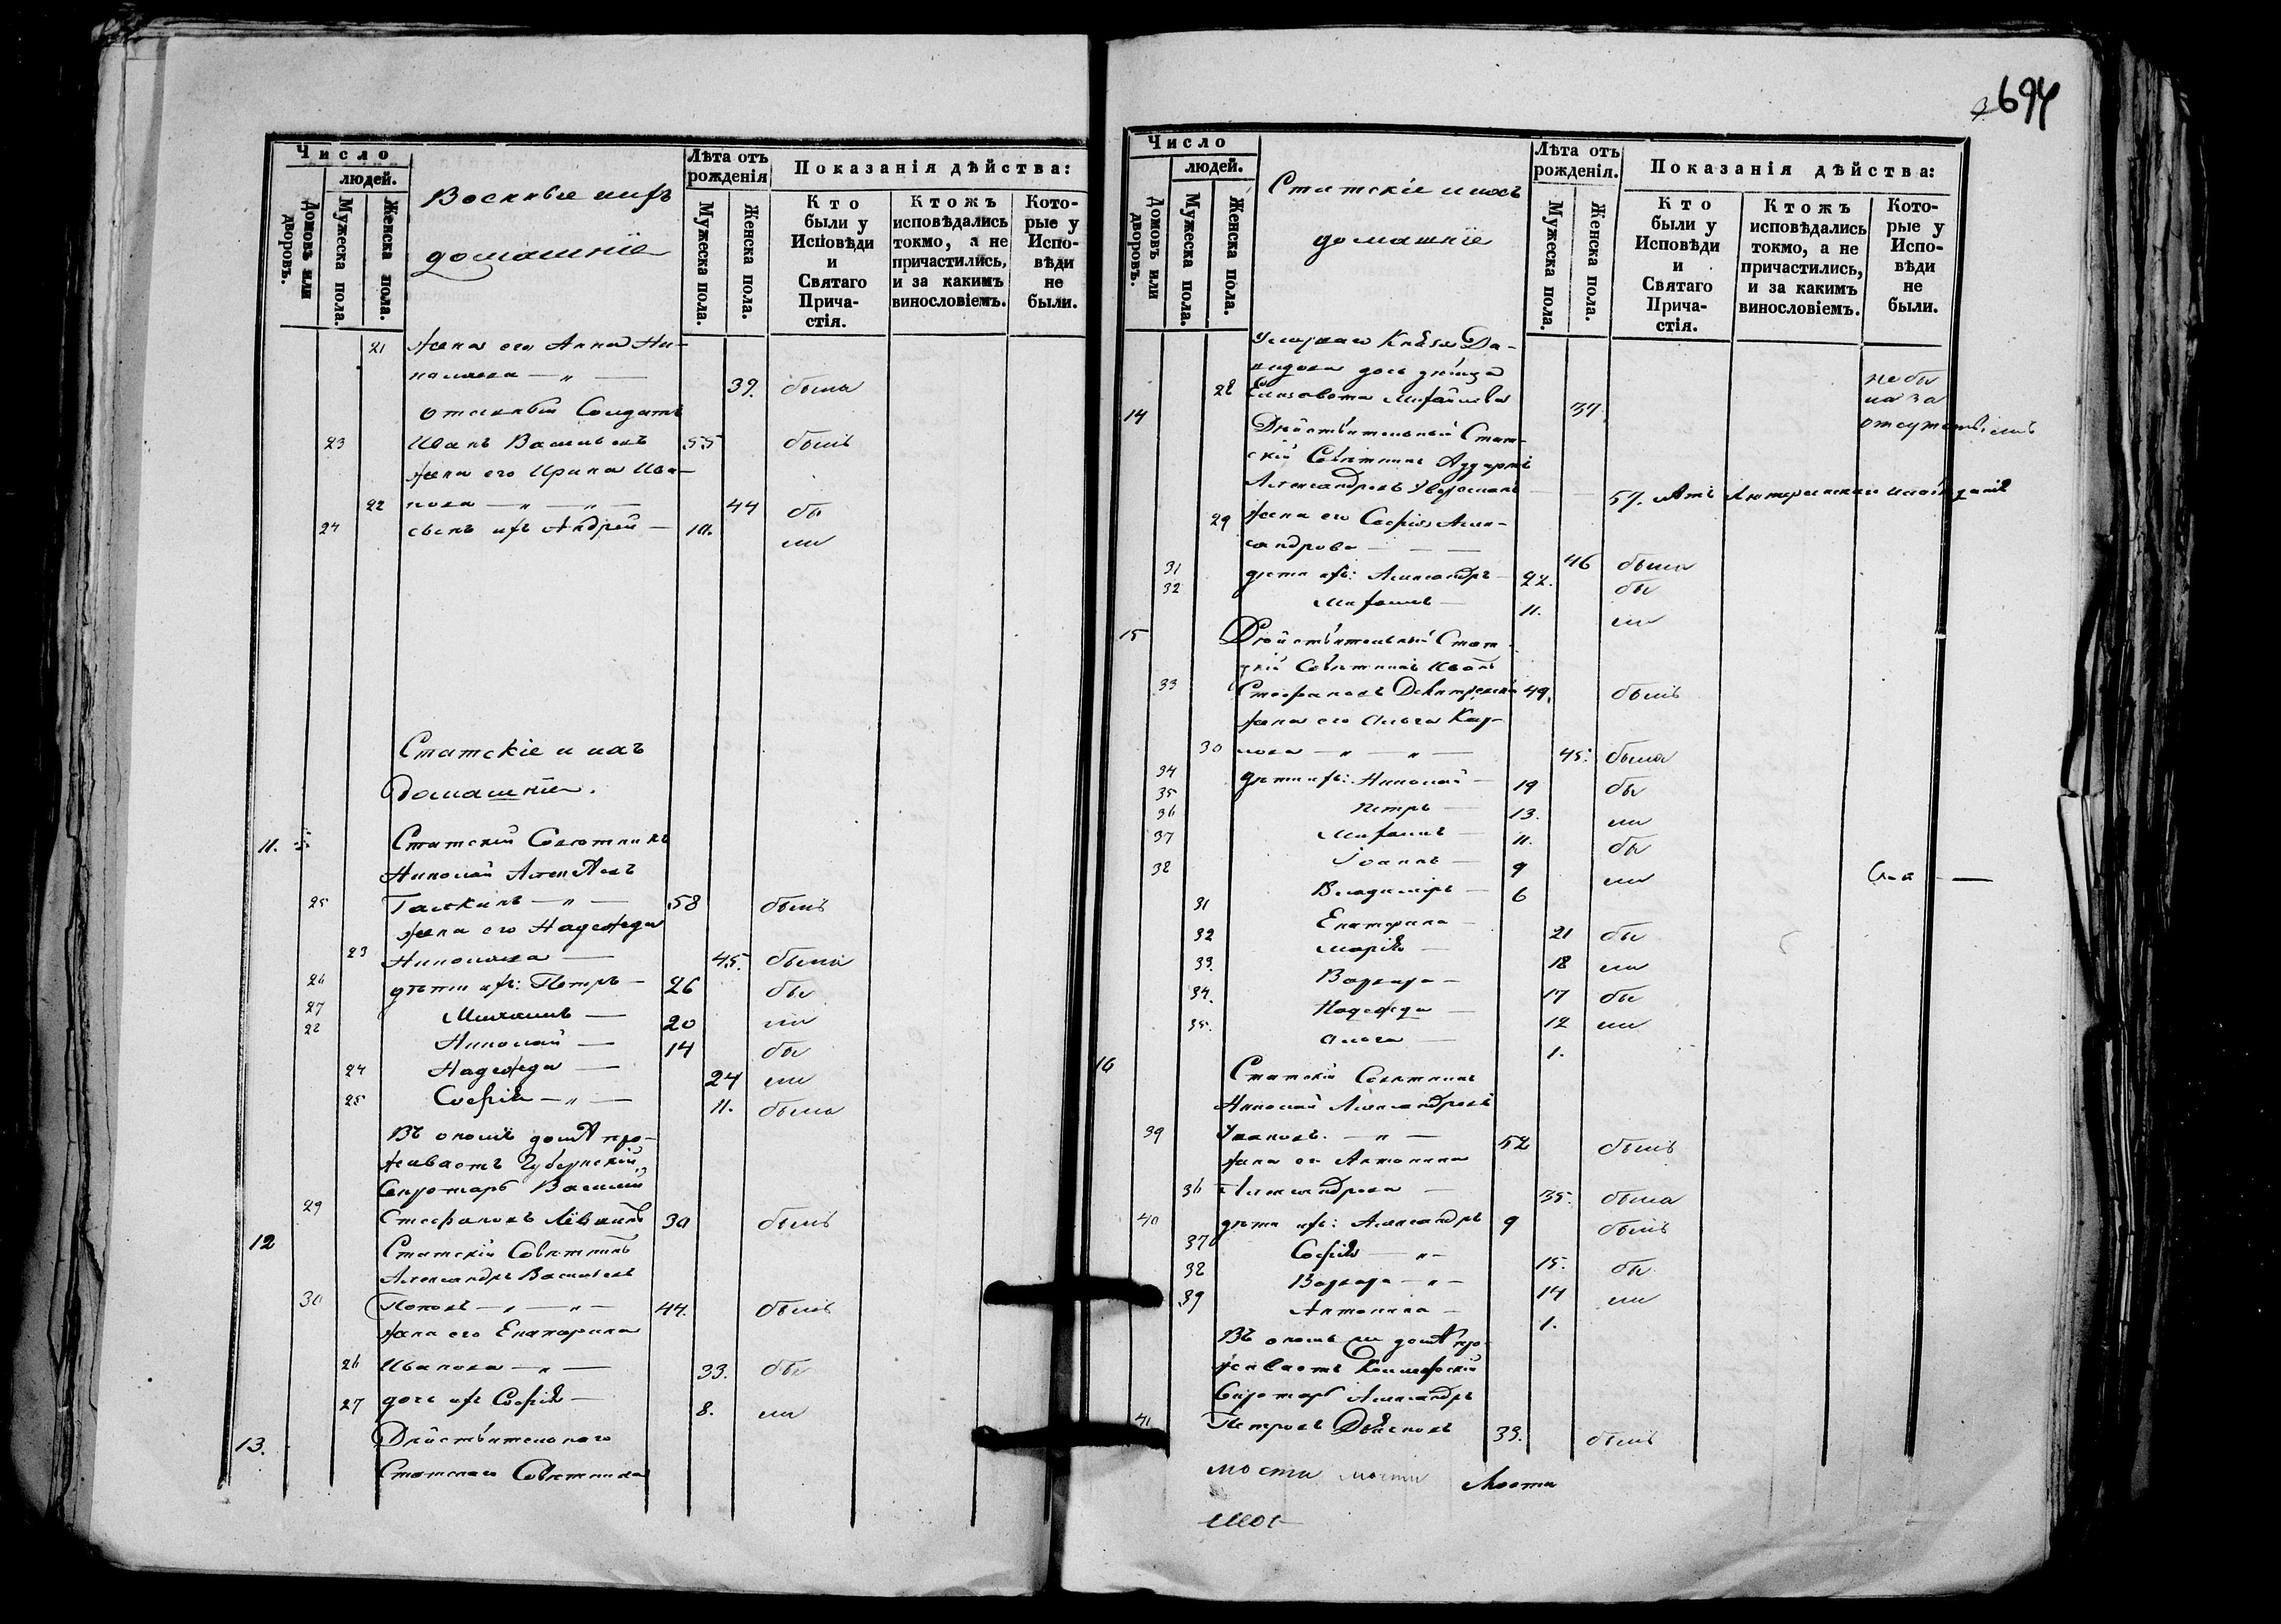 Число
людей.
Домовъ или дворовъ.
Мужеска пола.
Женска пола.
Военные ихъ
домашніе
Лѣта отъ рожденія
Мужеска пола.
Женска пола.
Показанія дѣйства:
Кто были у Исповѣди и Святаго Прича-стія.
Ктожъ исповѣдались токмо, а не причастились, и за какимъ винословіемъ.
Кото-рые у Испо-вѣди не были.
21 жена его Анна Ни-
колаева — „ — 39. была
отставный Солдатъ
23 Иванъ Васильевъ 55 былъ
жена его Ирина Ива-
22 нова — „ — „ — 44 бы
24 сынъ ихъ Андрей — 10. ли
Статскіе и ихъ
домашніе.
11. Статскій Совѣтникъ
Николай Алексѣевъ
25 Галкинъ — „ — 58 былъ
жена его Надежда
23 Николаева — 45. была
26 дѣти ихъ: Петръ — 26 бы
27 Михаилъ — 20 ли
28 Николай — 14 бы
24 Надежда — 24 ли
25 Софія — „ — 11. была
Въ ономъ домѣ про-
живаетъ Губернскій
Секретарь Василій
29 Стефановъ 30 былъ
12 Статскій Совѣтникъ
Александръ Васильевъ
30 Поповъ — „ — „ — 44. былъ
жена его Екатерина
26 Иванова — „ — 33. бы
27 дочь ихъ Софія — 8. ли
13. Дѣйствительнаго
Статскаго Совѣтника
694
Число
людей.
Домовъ или дворовъ.
Мужеска пола.
Женска пола.
Статскіе и ихъ
домашніе
Лѣта отъ рожденія.
Мужеска пола.
Женска пола.
Показанія дѣйства:
Кто были у Исповѣди и Святаго Прича-стія.
Ктожъ исповѣдались токмо, а не причастились, и за какимъ винословіемъ.
Кото-рые у Испо-вѣди не были.
Князя Да-
видова дочь дѣвица не бы
28 Елизавета Михайлова 37 ла за
14 Дѣйствительный Стат- отсутствіемъ
скій Совѣтникъ
Александровъ — 57. Лютеранскаго исповѣданія
29 жена его Софія Алек-
сандрова — — — 46 была
31 дѣти ихъ: Александръ — 22. бы
32 Михаилъ — 11. ли
15 Дѣйствительный Стат-
скій Совѣтникъ Иванъ
33 Стефановъ 49. былъ
жена его Ольга Кар-
30 лова — „ — „ — 45. была
34 дѣти ихъ: Николай — 19 бы
35 Петръ — 13. ли
36 Михаилъ — 11. бы
37 Іоаннъ — 9 ли
38 Владиміръ — 6
31 Екатерина — 21 бы
32 Марія — 18 ли
33. Варвара — 17 бы
34. Надежда — 12 ли
35. Ольга — 1.
16 Статскій Совѣтникъ
Николай Александровъ
39 Ушаковъ. — „ — 52 былъ
жена его Антонина
36 Александрова — 35. была
40 дѣти ихъ: Александръ 9 былъ
37 Софія — „ — 15. бы
38 Варвара — „ — 14 ли
39 Антонина — 1.
Въ ономъ же домѣ про-
живаетъ Коллежскій
Секретарь Александръ
41 Петровъ 33. былъ